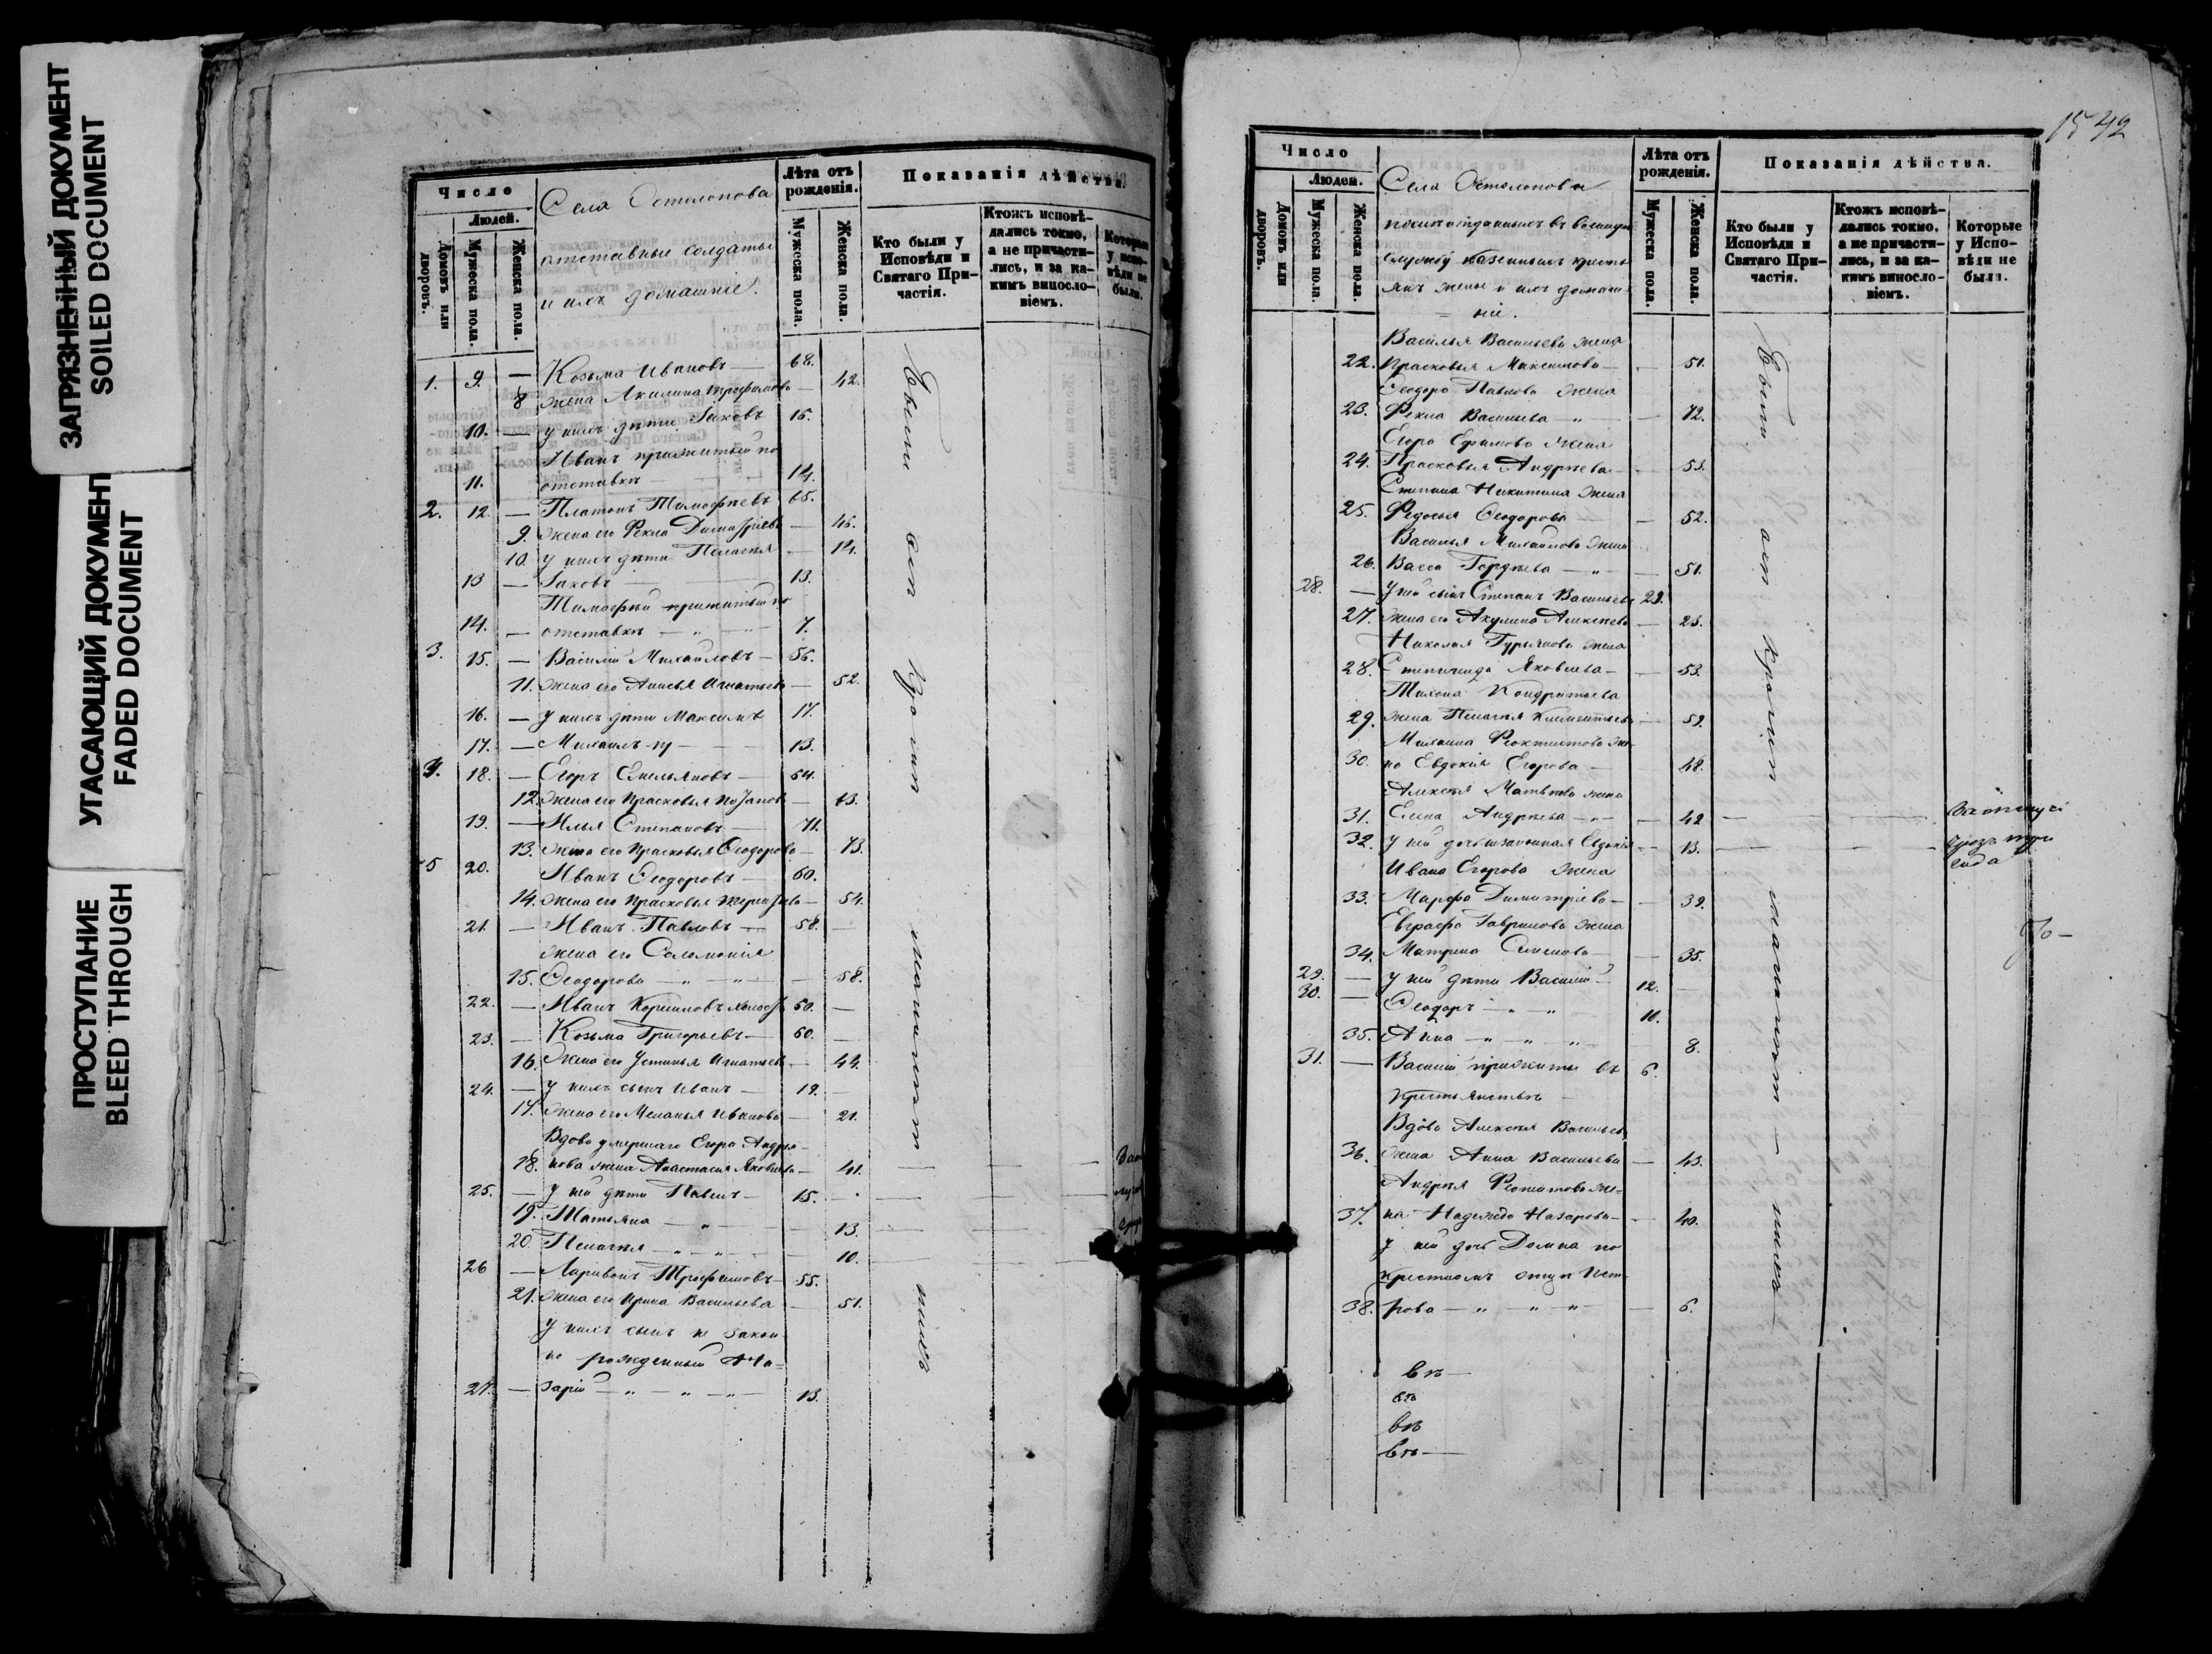 ЗАГРЯЗНЕННЫЙ ДОКУМЕНТ
SOILED DOCUMENT
УГАСАЮЩИЙ ДОКУМЕНТ
FADED DOCUMENT
ПРОСТУПАНИЕ
BLEED THROUGH
Число
Людей.
Домовъ или дворовъ.
Мужеска пола.
Женска пола.
Села Остолопова
отставные солдаты
и ихъ домашніе.
Лѣта отъ рожденія.
Мужеска пола.
Женска пола.
Показанія дѣйства.
Кто были у Исповѣди и Святаго Причастія.
Ктожъ исповѣдались токмо, а не причастились, и за какимъ винословіемъ.
Которые у исповѣди не были.
1. 9. — Козьма Ивановъ — 68.
8 жена Акилина Трофимова — 42.
10. — у нихъ дѣти Іаковъ 15.
Иванъ прижитый по
11. отставкѣ — 14.
2. 12. — Платонъ Тимофѣевъ 65.
9. жена его Фекла Димитріева — 46.
10. у нихъ дѣти Пелагея — 14.
13 — Іаковъ — 13.
Тимофѣй прижитый по
14. — отставкѣ — 7.
3. 15. — Василій Михайловъ — 56.
11. жена его Анисья Игнатьева — 52.
16. — у нихъ дѣти Максимъ 17.
17. — Михаилъ — 13.
4. 18. — Егоръ Емельяновъ — 64.
12. жена его Прасковья — 63.
19. — Илья Степановъ — 71.
13. жена его Прасковья Ѳеодорова — 73.
5 20. Иванъ Ѳеодоровъ — 60.
14. жена его Прасковья — 54.
21. — Иванъ Павловъ — 58. —
жена его Соломонія
15. Ѳеодорова — 58.
22. — Иванъ холостъ 60. —
23. — Козьма Григорьевъ — 60. —
16. жена его Устинья Игнатьева — 44.
24. — у нихъ сынъ Иванъ — 19. —
17. жена его Меланья Иванова — 21.
Вдова умершаго Егора Андрея-
18. нова жена Анастасія Яковлева — 41.
25. — у ней дѣти Павелъ — 15.
19. Татьяна — 13.
20. Пелагея — 10.
26 — Ларивонъ Трофимовъ — 55.
21. жена его Ирина Васильева — 51.
у нихъ сынъ не закон-
но рожденный На-
27. — зарій — 13.
1542
Число
Людей.
Домовъ или дворовъ.
Мужеска пола.
Женска пола.
Села Остолопова
въ военную
службу казенныхъ кресть-
янъ жены и ихъ домаш-
ніе.
Лѣта отъ рожденія.
Мужеска пола.
Женска пола.
Показанія дѣйства.
Кто были у Исповѣди и Святаго Причастія.
Ктожъ исповѣдались токмо, а не причастились, и за какимъ винословіемъ.
Которые у Исповѣди не были.
Василья Васильева жена
22. Прасковья Максимова — 51.
Ѳеодора Павлова жена
23. Фекла Васильева — 72.
Егора Ефимова жена
24. Прасковья Андрѣева — 53.
Степана Никитина жена
25. Федосья Ѳеодорова — 52.
Василья Михайлова жена
26. Васса Гордѣева — 51.
28. — у ней сынъ Степанъ Васильевъ 29.
27. жена его Акулина Алексѣева — 25.
Николая Гурьянова жена
28. Степанида Яковлева — 53.
Тихона Кондратьева
29. жена Пелагея Климентьева — 59.
Феоктистова же-
30. на Евдокія Егорова — 48.
Алексѣя Матвѣева жена
31. Елена Андрѣева — 42
32. у ней дочь незаконная Евдокія — 13.
Ивана Егорова жена
33. Марфа Димитріева — 39.
Евграфа Гаврилова жена
34. Матрена Семенова — 35.
29. — у ней дѣти Василій 12.
30. — Ѳеодоръ — 10.
35. Анна — 8.
31. — Василій прижитъ въ 6.
крестьянствѣ —
Вдова Алексѣя Васильева
36. жена Анна Васильева — 43.
Андрея же-
37. на Надежда Назарова — 40.
у ней дочь Домна по
38. рова — 6.